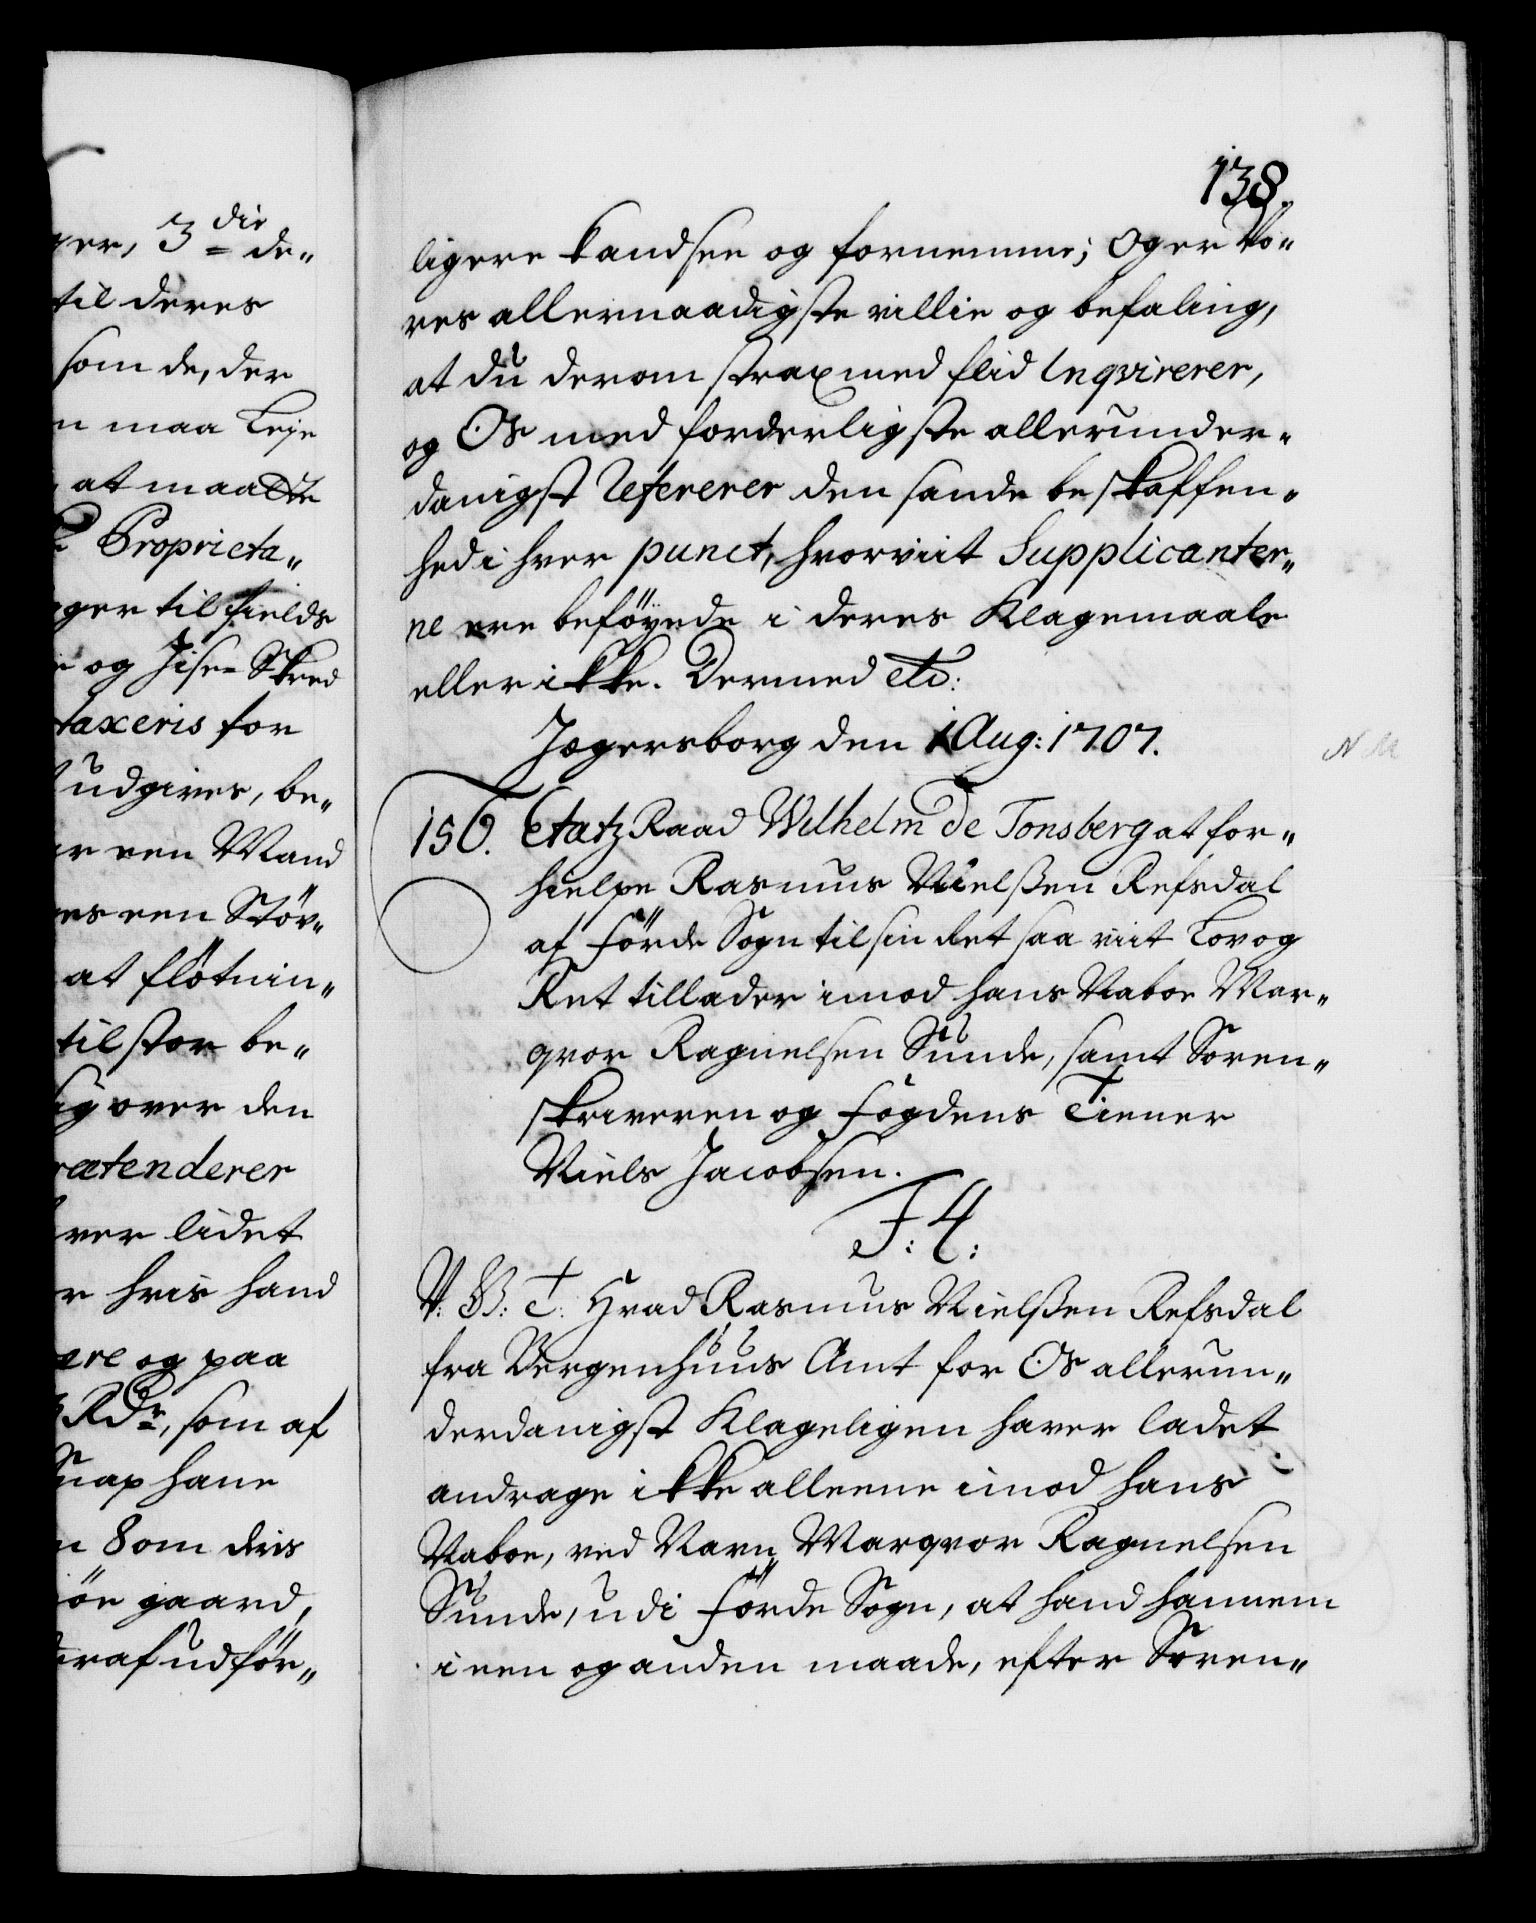 ger, 3 die de„
til deres
som de, der
n maa Leje
at maatte
Proprieta„
ger til fields
og Jise= Skred
taxeris for
udgives, be„
er een Mand
es een Stör„
at flötnin„
til stor be„
ig over den
rætenderer
ver lidet
r hvis hand
ære og paa
RDr, som af
Snaphane
n 8 om dris
ön gaard,
eraf udför„
138.
ligere kand see og fornemme; Og er Vo„
res allernaadigste villie og befaling,
at du derom strax med flid Inqvirerer,
og Os med forderligste allerunder„
danigst Refererer den sande beskaffen„
hed i hver punct, hvorviit Supplicanter„
ne ere beföyede i deres Klagemaale
eller ikke. Dermed etc:
Jægersborg den 1 Aug: 1707.
N M
156. EtatzRaad Wilhelm de Tonsberg at for„
hielpe Rasmus Nielßen Refsdal
af Förde Sogn til sin Ret saa viit Lov og
Ret tillader imod hans Naboe Mar„
qvor Ragnelsen Sunde, samt Soren„
skriveren og Fogdens Tiener
Niels Jacobsen.
F: 4:
V: G: T: Hvad Rasmus Nielßen Refsdal
fra Bergenhuus Amt for Os allerun„
derdanigst Klageligen haver ladet
andrage ikke alleene imod hans
Naboe, ved Navn Marqvor Ragnelsen
Sunde, udi Förde Sogn, at hand hannem
i een og anden maade, efter Soren„